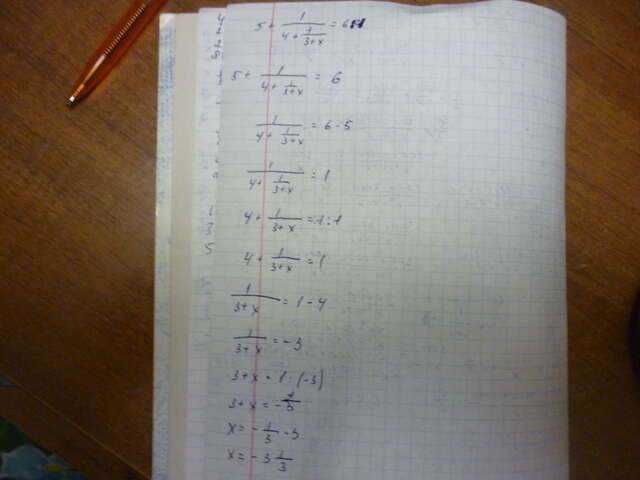 5 + 1/(4 + 1/(3+x)) = 6
5 + 1/(4 + 1/(3+x)) = 6
1/(4 + 1/(3+x)) = 6 - 5
1/(4 + 1/(3+x)) = 1
4 + 1/(3+x) = 1 : 1
4 + 1/(3+x) = 1
1/(3+x) = 1 - 4
1/(3+x) = -3
3 + x = 1 : (-3)
3 + x = -1/3
x = -1/3 - 3
x = -3 1/3